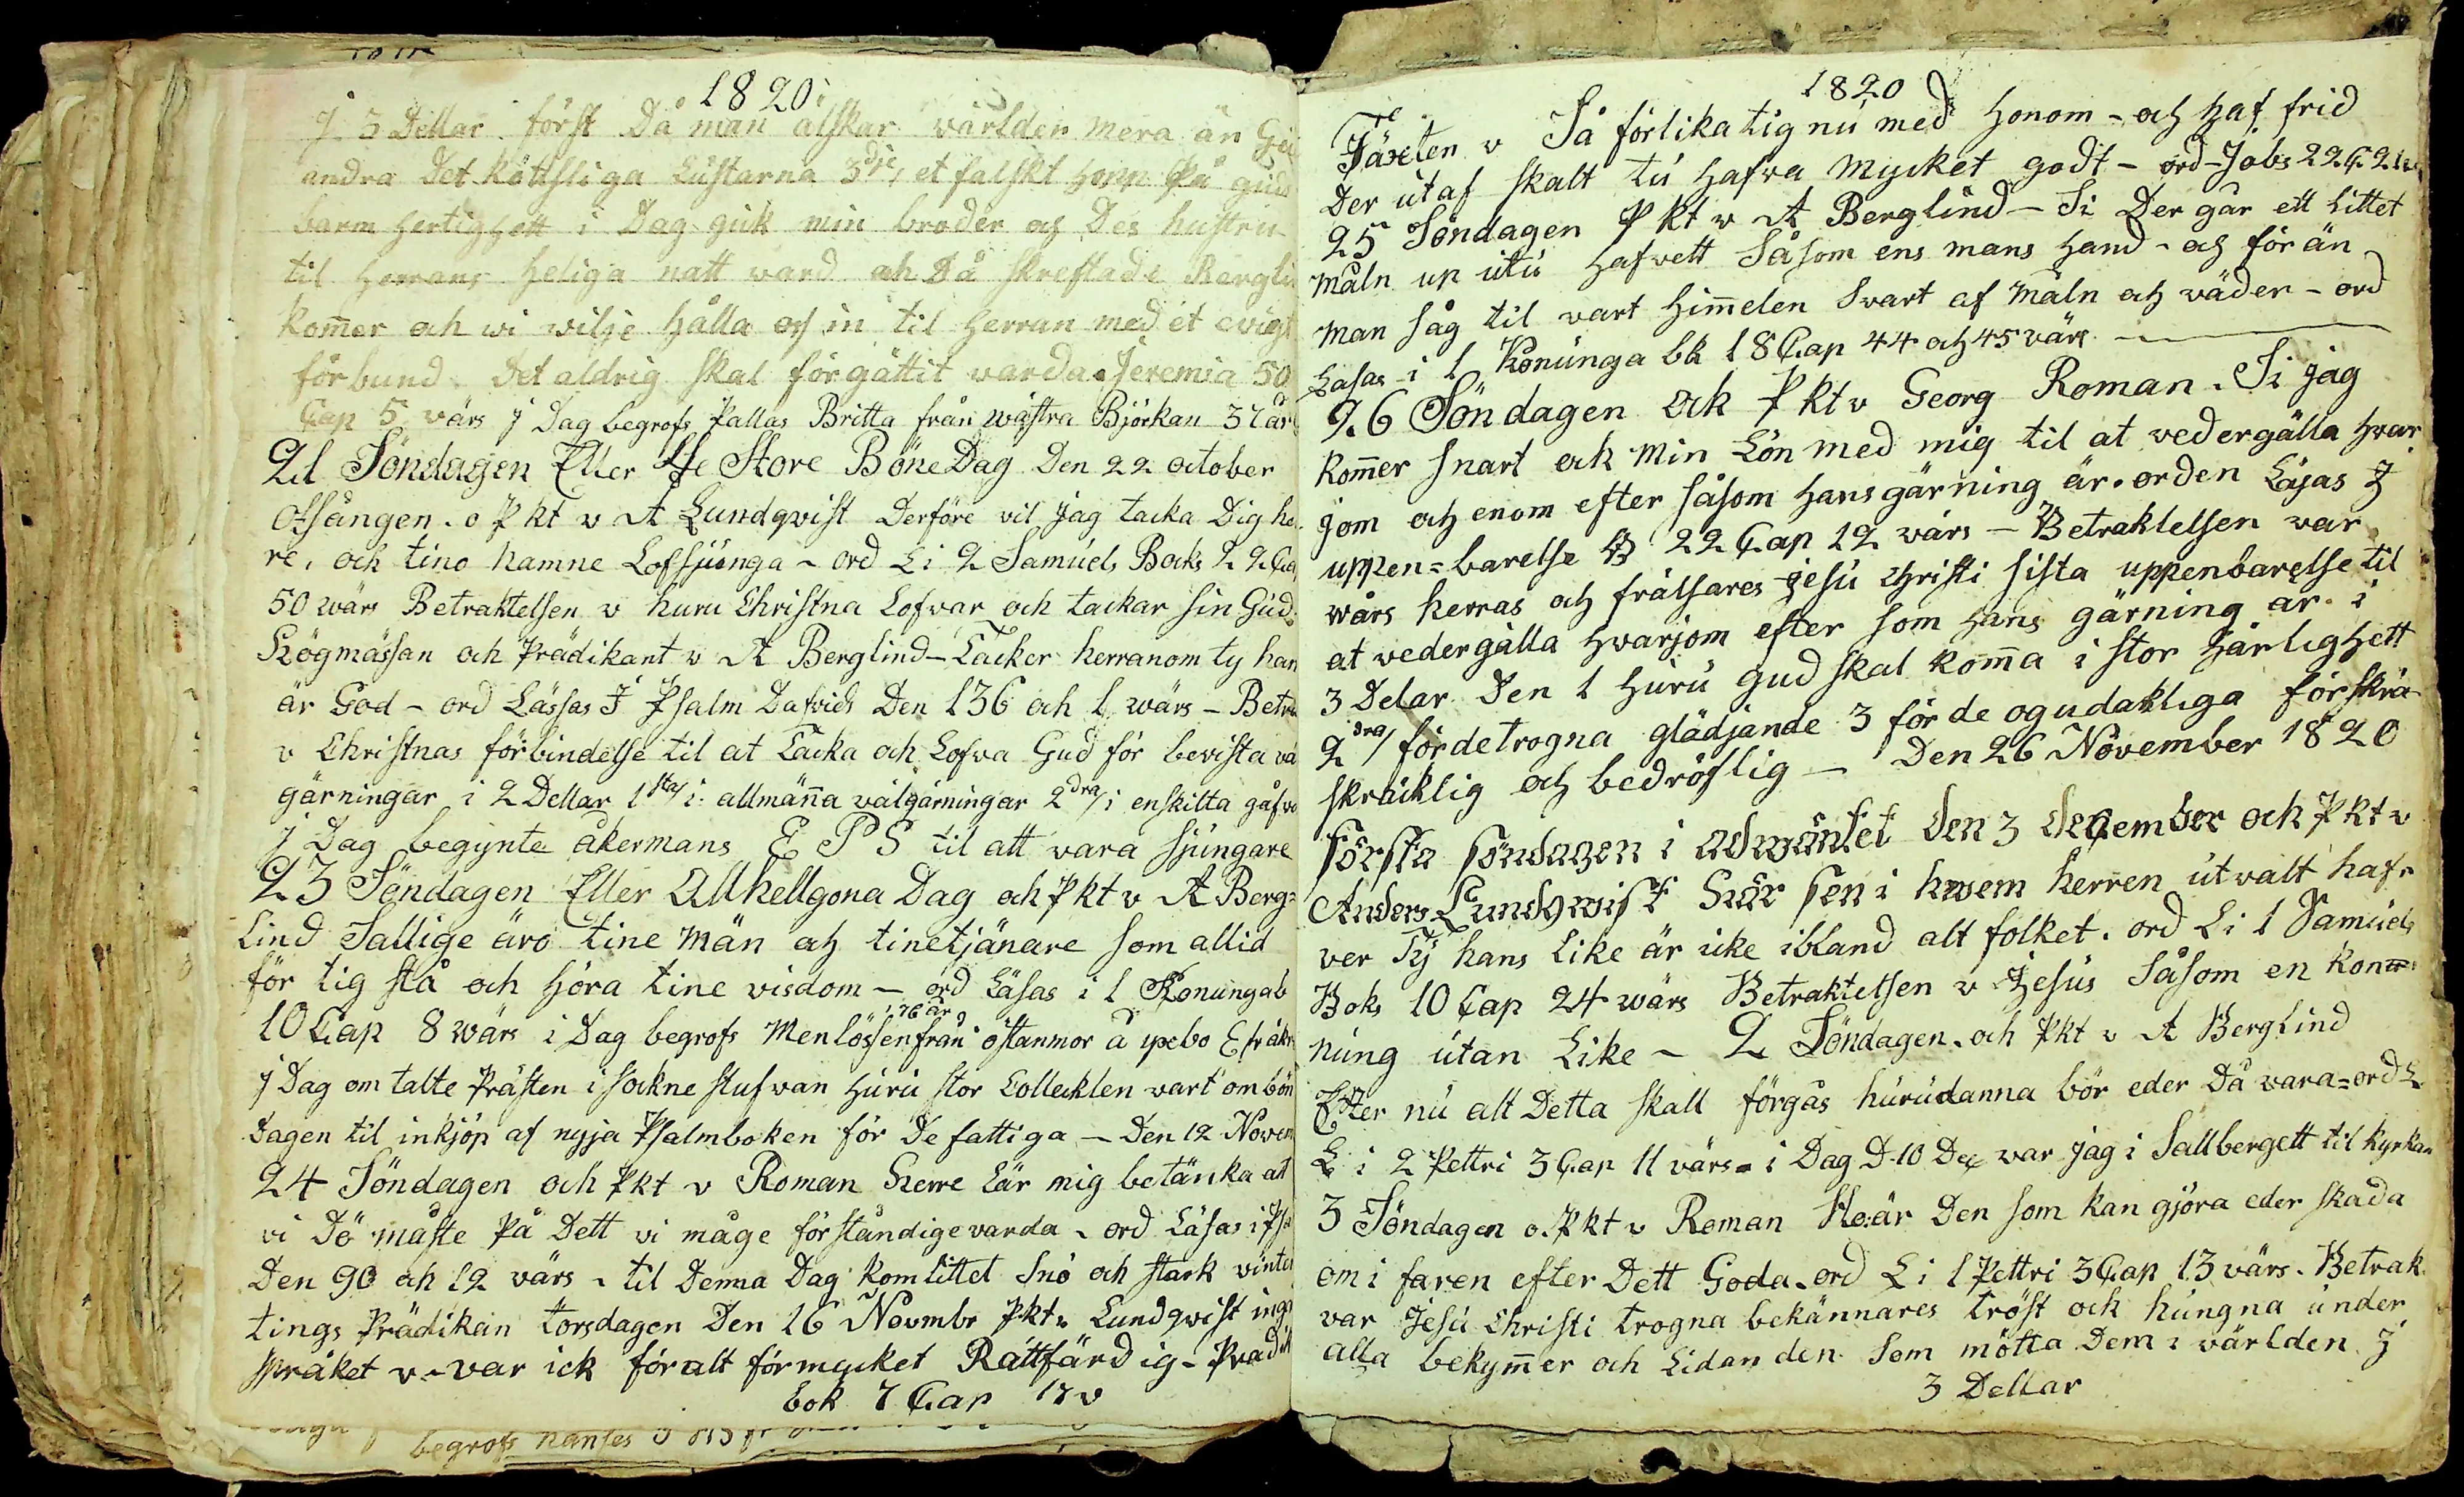 1820
j 3 Dellar först Då man älskar världen mera än Gu
andra Det köttsliga Lustarna 3dje/ et falskt hopp På guds
barm hertighett i Dag gick min broder och Des hustru
til Herrans heliga natt vard och Då skreftade Bergli
kom̅er och wi wilje hålla oss in til Herran med et evigt
förbund. Det aldrig skal förgättit varda. Jeremia 50
Cap 5 värs j Dag begrofs Pallas Britta från wästra Björkan 37 år
21 Söndagen Eller 4de Store Böne Dag Den 22 october
otsången. o Pkt v A Lundqvist Derföre vil jag tacka Dig he
re, och tino namne Lofsjunga - ord L i 2 Samuels Boks 22 Ca
50 wärs Betraktelsen v huru Christna Lofvar och tackar sin Gud.
Högmässan och Prädikant v A Berglind - Tacker herranom ty han
är God - ord Lässas J Psalm Dafvids Den 136 och 1 wärs - Betra
v Christnas förbindelse til at Tacka och Lofva Gud för bevista vä
gärningar i 2 Dellar 1sta/ i allmän̅a välgärningar 2dra/ i enskilta gåfvo
j Dag begynte åkermans E P S til att vara sjungare
23 Söndagen Eller Allhellgona Dag och Pkt v A Berg=
lind Sallige äro tine män och tine tjänare som allid
för tig stå och höra tine visdom - ord Läsas i 1 Konungab
i 76 år
10 Cap 8 wärs i Dag begrofs Menlössen från östanmor å ypebo E fr åkr
j Dag om talte Prästen i sockne stufwan huru stor Collecklen vart om bön
dagen til inkjöp af nyja Psalmboken för De fattiga - Den 12 Novem
24 Söndagen och Pkt v Roman Herre Lär mig betänka at
vi Dö måste På Dett vi måge förståndige varda - ord Läsas i Psa
Den 90 och 12 värs - til Denna Dag kom littet Snö och stark vinter
tings Prädikan torsdagen Den 16 Novmbr Pkt v Lundqvist ings
språket v - var ick för alt för mycket Rättfärdig - Pradik
bok 7 Cap 17 v
begrofs hanses
1820
Täxten v Så förlika tig nu med honom - och haf frid
Der utaf skalt tu hafva mycket godt - ord - Jobs 22 C. 21v
25 Söndagen Pkt v A Berglind - Si Der går ett littet
måln up utu hafvett Såsom ens mans hand - och för än
man såg til vart him̅elen Svart af måln och väder - ord
Läsas i 1 Konunga bk 18 Cap 44 och 45 värs
26 Söndagen ock Pkt v Georg Roman. Si jag
kom̅er snart ock min Lön med mig til at vedergälla hvar
jom och enom efter såsom hans gärning är. orden Läsas J
uppen=barelse B 22 Cap 12 värs - Betraktelsen var
wårs herras och frälsares jesu Christi sista uppenbarelse til
at vedergälla hvarjom efter som hans gärning är. i
3 Delar Den 1 Huru gud skal kom̅a i stor Härlighett
2dra/ för de trogna glädjande 3 för de ogudaktiga förskrä
skräcklig och bedröflig - Den 26 November 1820
första söndagen i adwäntet den 3 december och Pkt v
Anders Lundqwist Här sen i hwem herren utvalt haf.
ver Ty hans Like är icke ibland alt folket. ord L i 1 Samuels
Boks 10 Cap 24 wärs Betraktelsen v Jesus Såsom en Konu=
nung utan Like - 2 Söndagen. och Pkt v A Berglind
Efter nu alt Detta skall förgås hurudanna bör eder Då vara = ord L
L i 2 Pettri 3 Cap 11 värs = i Dag D. 10 Dec var jag i Sallbergett til kyrkan
3 Söndagen o. Pkt v Roman Ho är Den som kan gjöra eder skada
om i faren efter Dett Goda. ord L i 1 Pettri 3 Cap 13 värs. Betrak
var Jesu Christi trogna bekännares tröst och hungna under
alla bekym̅er och Lidan den Som mötta Dem i världen J
3 Dellar